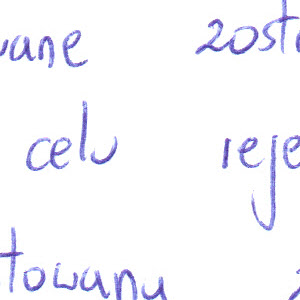 wane zosta
celu reje
towany